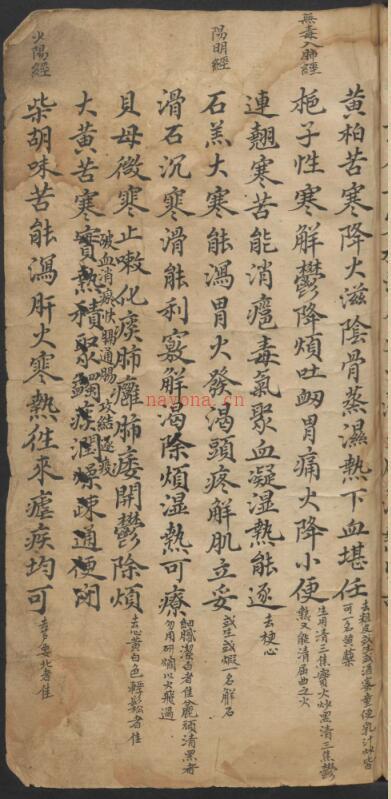 黃柏苦寒降火滋陰骨蒸濕熱下血堪任
可一名黃蘗
無毒入肺經
梔子性寒解鬱降煩吐衄胃痛火降小便
連翹寒苦能消癰毒氣聚血凝湿熱能逐
去梗心
陽明經
石羔大寒能瀉胃火發渴頭疼解肌立妥
或生或煆一名解石
滑石沉寒滑能利竅解渴除煩湿熱可療
細膩潔白者佳麄頑清黑者
貝母微寒止嗽化痰肺癰肺痿開鬱除煩
去心黃白色輕鬆者佳
大黃苦寒實熱積聚蠲痰潤燥疎通便閉
火陽經
柴胡味苦能瀉肝火寒熱徃來瘧疾均可
去芦要北者佳
nayona.cn